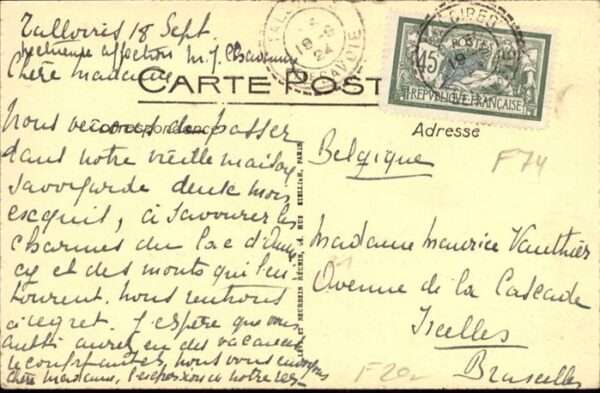 Talloires 18 Sept.
affection M. J. Chavanne
Chère madame
CARTE POST
Correspondance
Nous venons de passer
dans notre vieille maison
savoyarde deux mois
exquis, à savourer les
charmes du lac d'Anne
cy et des monts qui l'en
tourent. Nous rentrons
à regret. J'espère que vous
aussi aurez eu des vacances
réconfortantes, nous vous envoyons
chère madame, l'expression de notre res-
TALLOIRES
18 -9
24
SAVOIE
45
POSTES
REPUBLIQUE FRANÇAISE
Adresse
F74
Belgique
Madame Maurice Vauthier
Avenue de la Cascade
Ixelles
Bruxelles
F20
PARIS